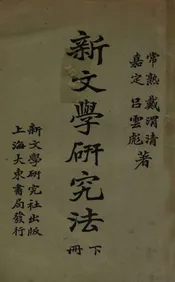 常熟 戴渭清
嘉定 呂雲彪 著
新文學研究法
下冊
新文學研究社出版
上海大東書局發行